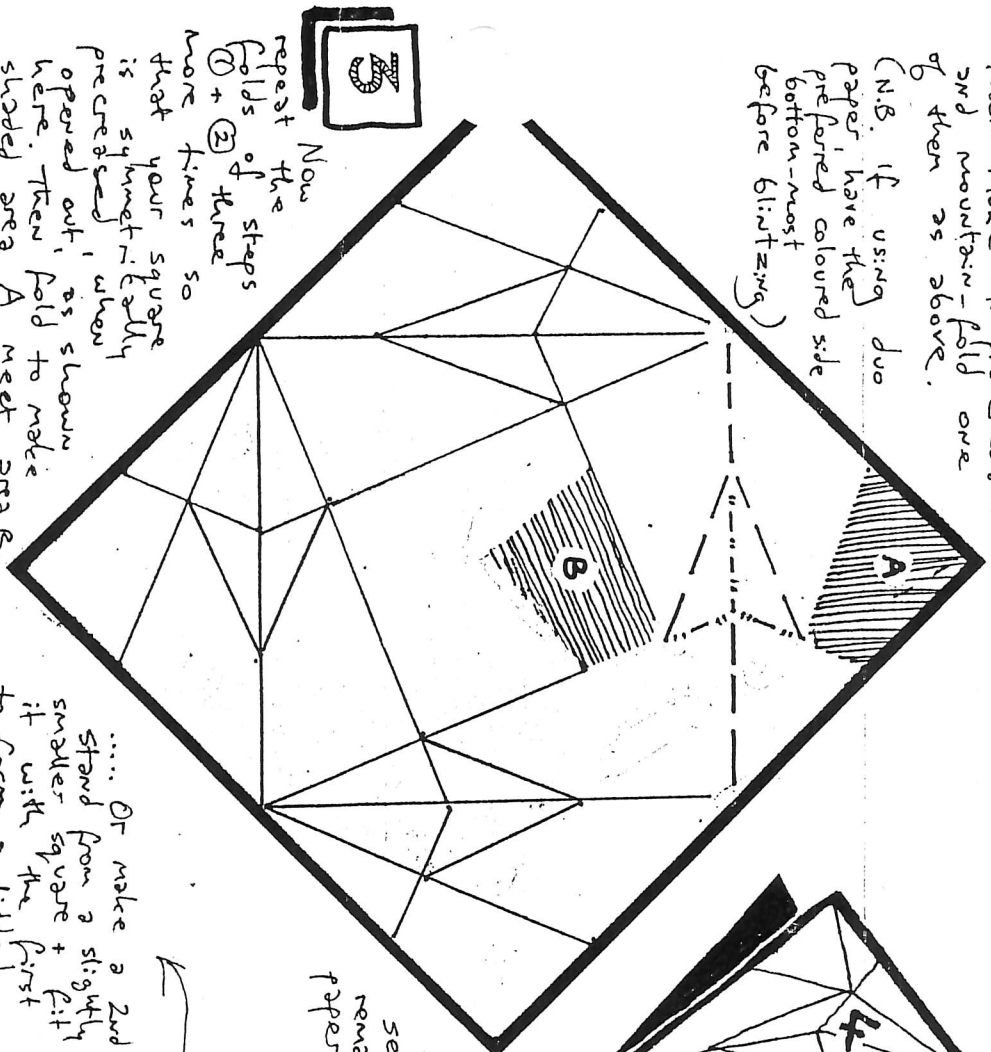 and mountain-fold one
of them as above.
(N.B. if using duo
paper, have the
preferred coloured side
bottom-most
before blintzing)
3
Now
repeat the
folds of steps
① + ② three
more times so
that your square
is symmetrically
precreased, when
opened out, as shown
here. Then fold to make
shaded area A meet area B
A
B
..... Or make a 2nd
stand from a slightly
smaller square + fit
it with the first
4
paper